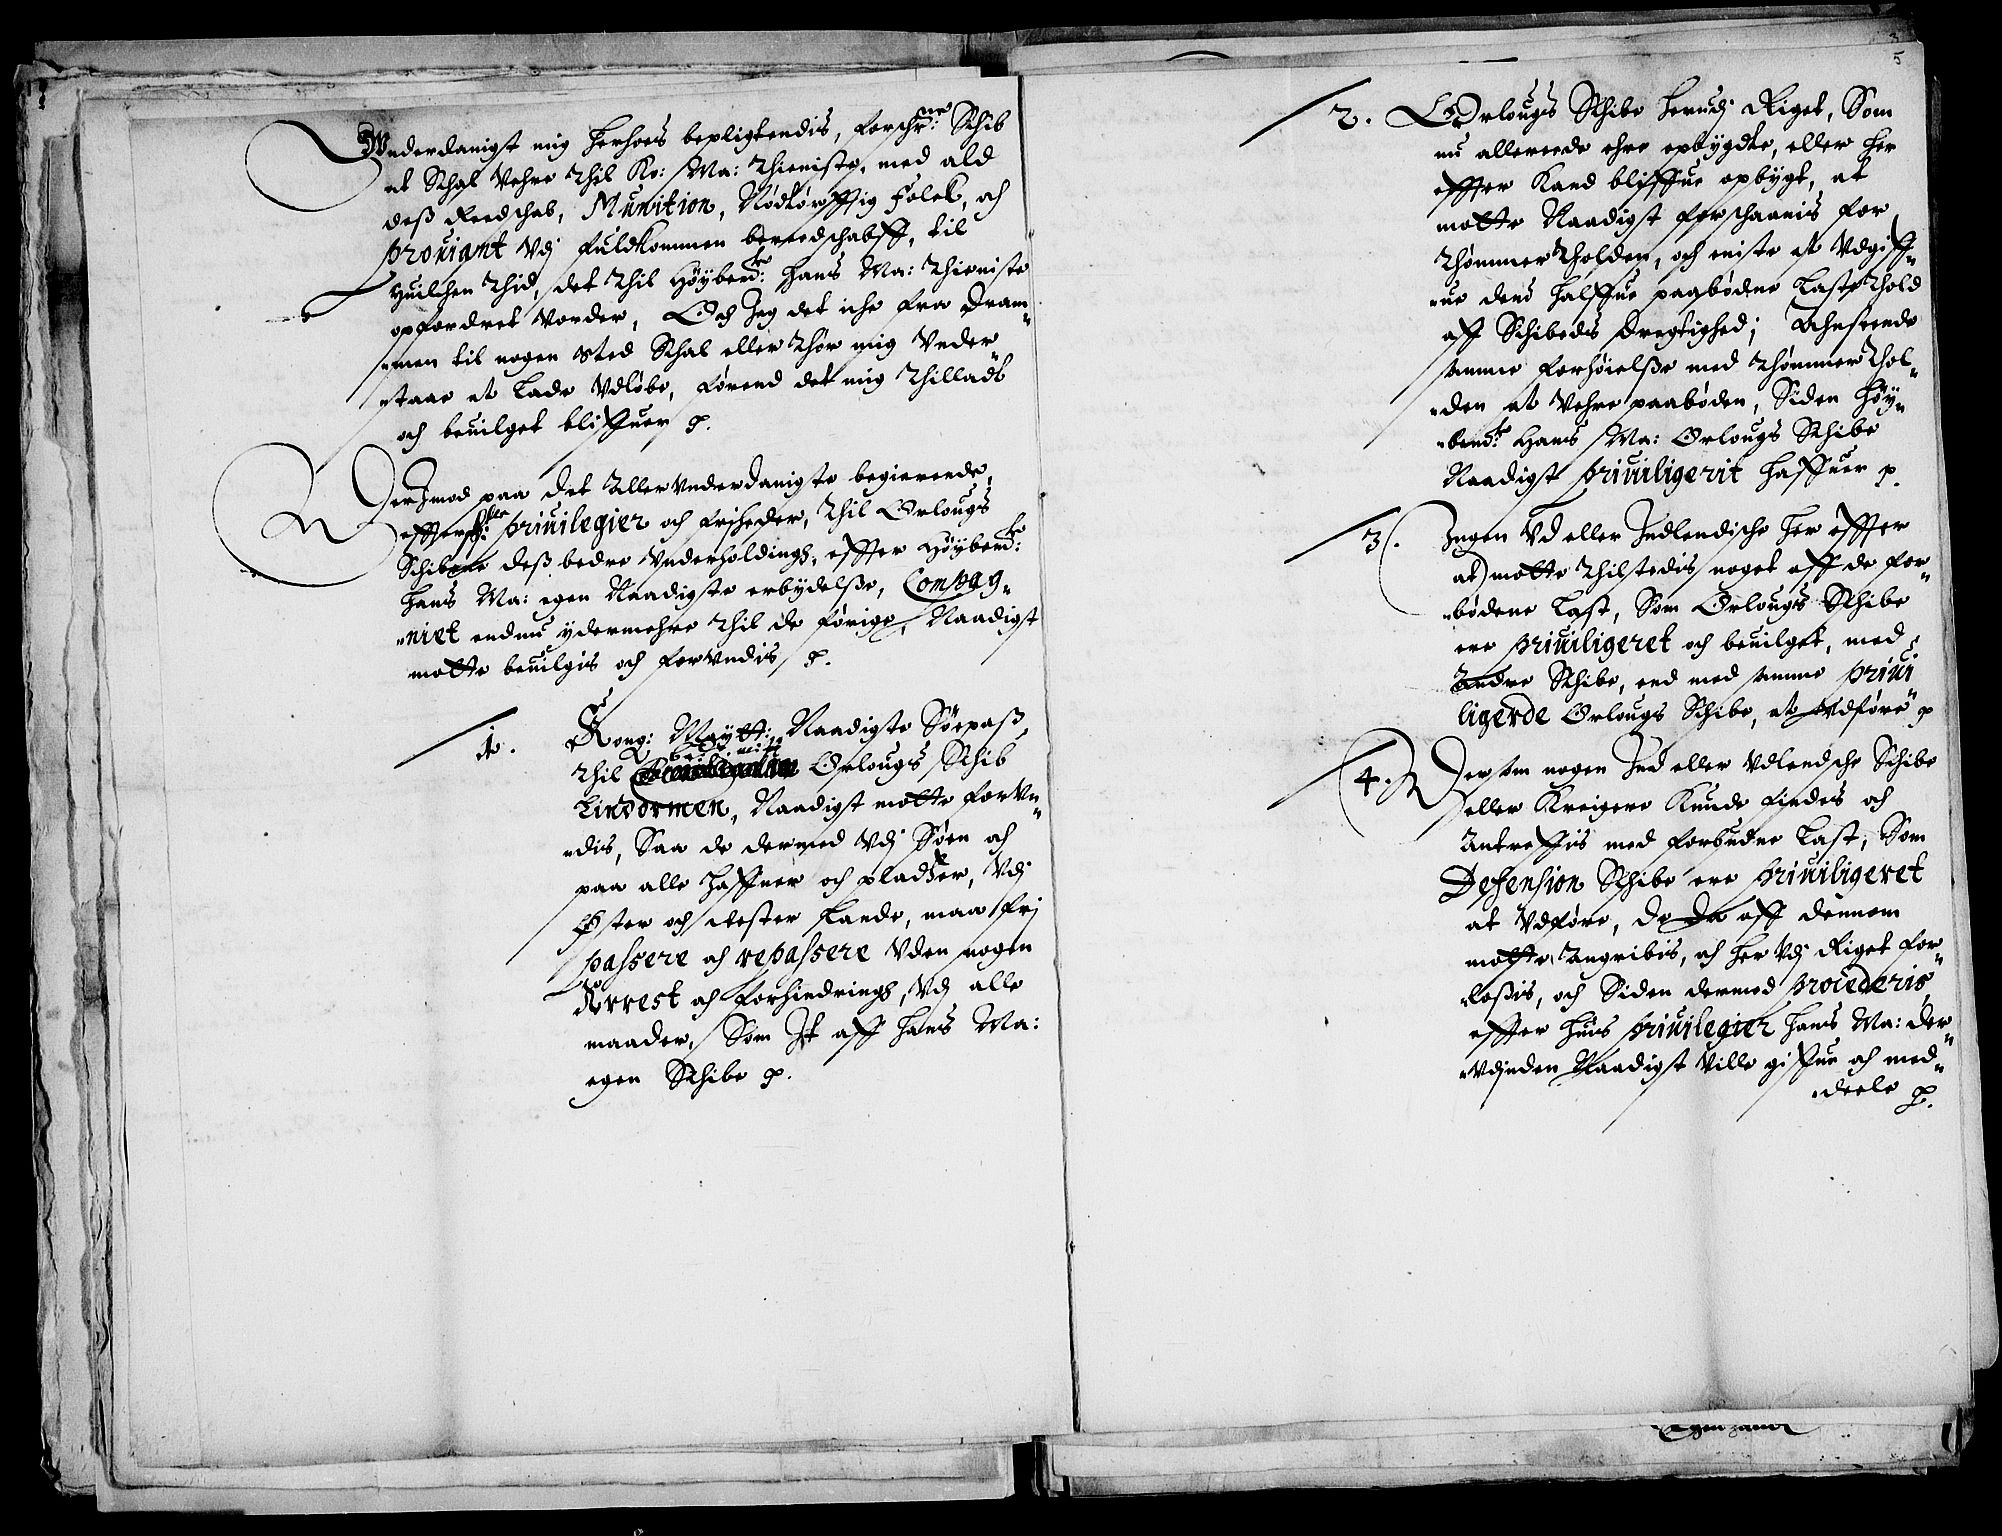 Vnderdanigst mig herhoes bepligtendis, forschr:ne Schib
at Schal Vehre Thil Ko: Ma: Thieniste, med ald
deß Reedschab, Munition, Nödtörfftig Folck, och
prouiant Vdj fuldkommen beredschabff, til
huilchen Thid, det Thil Höybend:te Hans Ma: Thieniste
opfordret Vorder, Och Jeg det iche fra Dram„
„men til nogen sted Schal eller Thör mig Vnder
„staae at Lade Vdlöbe, förend det mig Thilladt
och beuilget bliffuer p.
Der Jmod paa det Allervnderdanigste begierende,
effterschr:ne priuilegier och friheder, Thil Orlougs
Schibene deß bedre Vnderholdings, effter Höybend:te
Hans Ma: egen Naadigste erbydelße, Compag„
„niet endnu ydermehre Thil de förige, Naadigst
motte beuilgis och forvndis p.
1. Kong: Maytt: Naadigste Söepaß
Thil Orlougs Schib
Lindormen, Naadigst motte forvn„
„dis, Saa de dermed Vdj Söen och
paa alle Haffner och pladtzer, Vdj
Öster och Vester Lande, maa frj
passere och repassere Vden nogen
Arrest och forhindrings, Vdj alle
maader, Som Jt aff Hans Ma:
egen Schibe p.
3
5
2. Orlougs Schibe herudj Riget, Som
nu allereede ehre opbygdte, eller her
effter Kand bliffue opbygt, at
motte Naadigst forschaanis for
Thömmer Tholden, och eniste at Vdgiff„
„ue dend halffue paabödne Laste Thold
aff Schibedis Dregtighed; Anseende
samme forhöielße med Thömmer Thol„
„den at Vehre paaböden, Siden Höy„
„bend:te Hans Ma: Orlougs Schibe
Naadigst priuiligerit haffuer p.
3. Jngen Vd eller Jndlendische her effter
at motte Thilstedis noget aff de for„
„bödene Last, Som Orlougs Schibe
ere priuiligeret och beuilget, med
Andre Schibe, end med samme priui„
ligerde Orlougs Schibe, at Vdföre p
4. Dersom nogen Jnd eller Vdlendsche Schibe
eller Kreigere Kunde findes och
Antreffis med forbudne Last, Som
Defension Schibe ere priuiligeret
at Vdföre, de da aff dennem
motte Angribis, och her Vdj Riget for„
„loßis, och Siden dermed procederis,
effter huis priuilegier Hans Ma: der
„Vdjnden Naadigst Ville giffue och med„
„deele p.